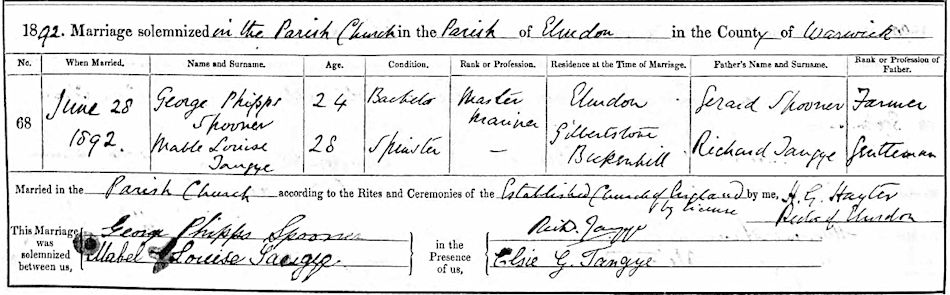 1892. Marriage solemnized in the Parish Church in the Parish of Elmdon in the County of Warwick
No. When Married. Name and Surname. Age. Condition. Rank or Profession. Residence at the Time of Marriage. Father's Name and Surname. Rank or Profession of Father.
68 June 28 1892. George Phipps Spooner 24 Bachelor Master Mariner Elmdon Gerard Spooner Farmer
Mable Louise Tangye 28 Spinster — Gilbertstone Bickenhill Richard Tangye Gentleman
Married in the Parish Church according to the Rites and Ceremonies of the Established Church of England by licence by me, H. G. Hayter
Rector of Elmdon
This Marriage was solemnized between us, George Phipps Spooner in the Presence of us, Richd. Tangye
Mabel Louise Tangye. Elsie G. Tangye